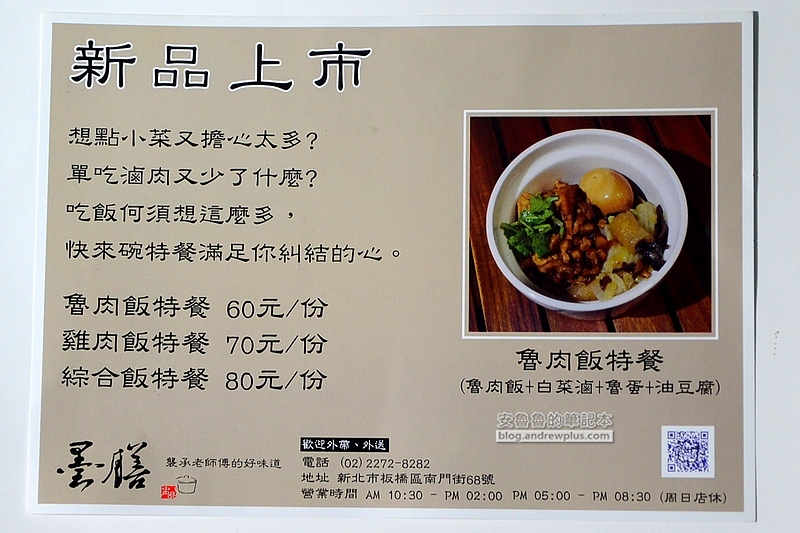 新品上市
想點小菜又擔心太多?
單吃滷肉又少了什麼?
吃飯何須想這麼多，
快來碗特餐滿足你糾結的心。
魯肉飯特餐 60元/份
雞肉飯特餐 70元/份
綜合飯特餐 80元/份
魯肉飯特餐
(魯肉飯+白菜滷+魯蛋+油豆腐)
安魯魯的筆記本
blog.andrewplus.com
墨膳
襲承老師傅的好味道
歡迎外帶、外送
電話 (02)2272-8282
地址 新北市板橋區南門街68號
營業時間 AM 10:30 - PM 02:00 PM 05:00 - PM 08:30 (周日店休)